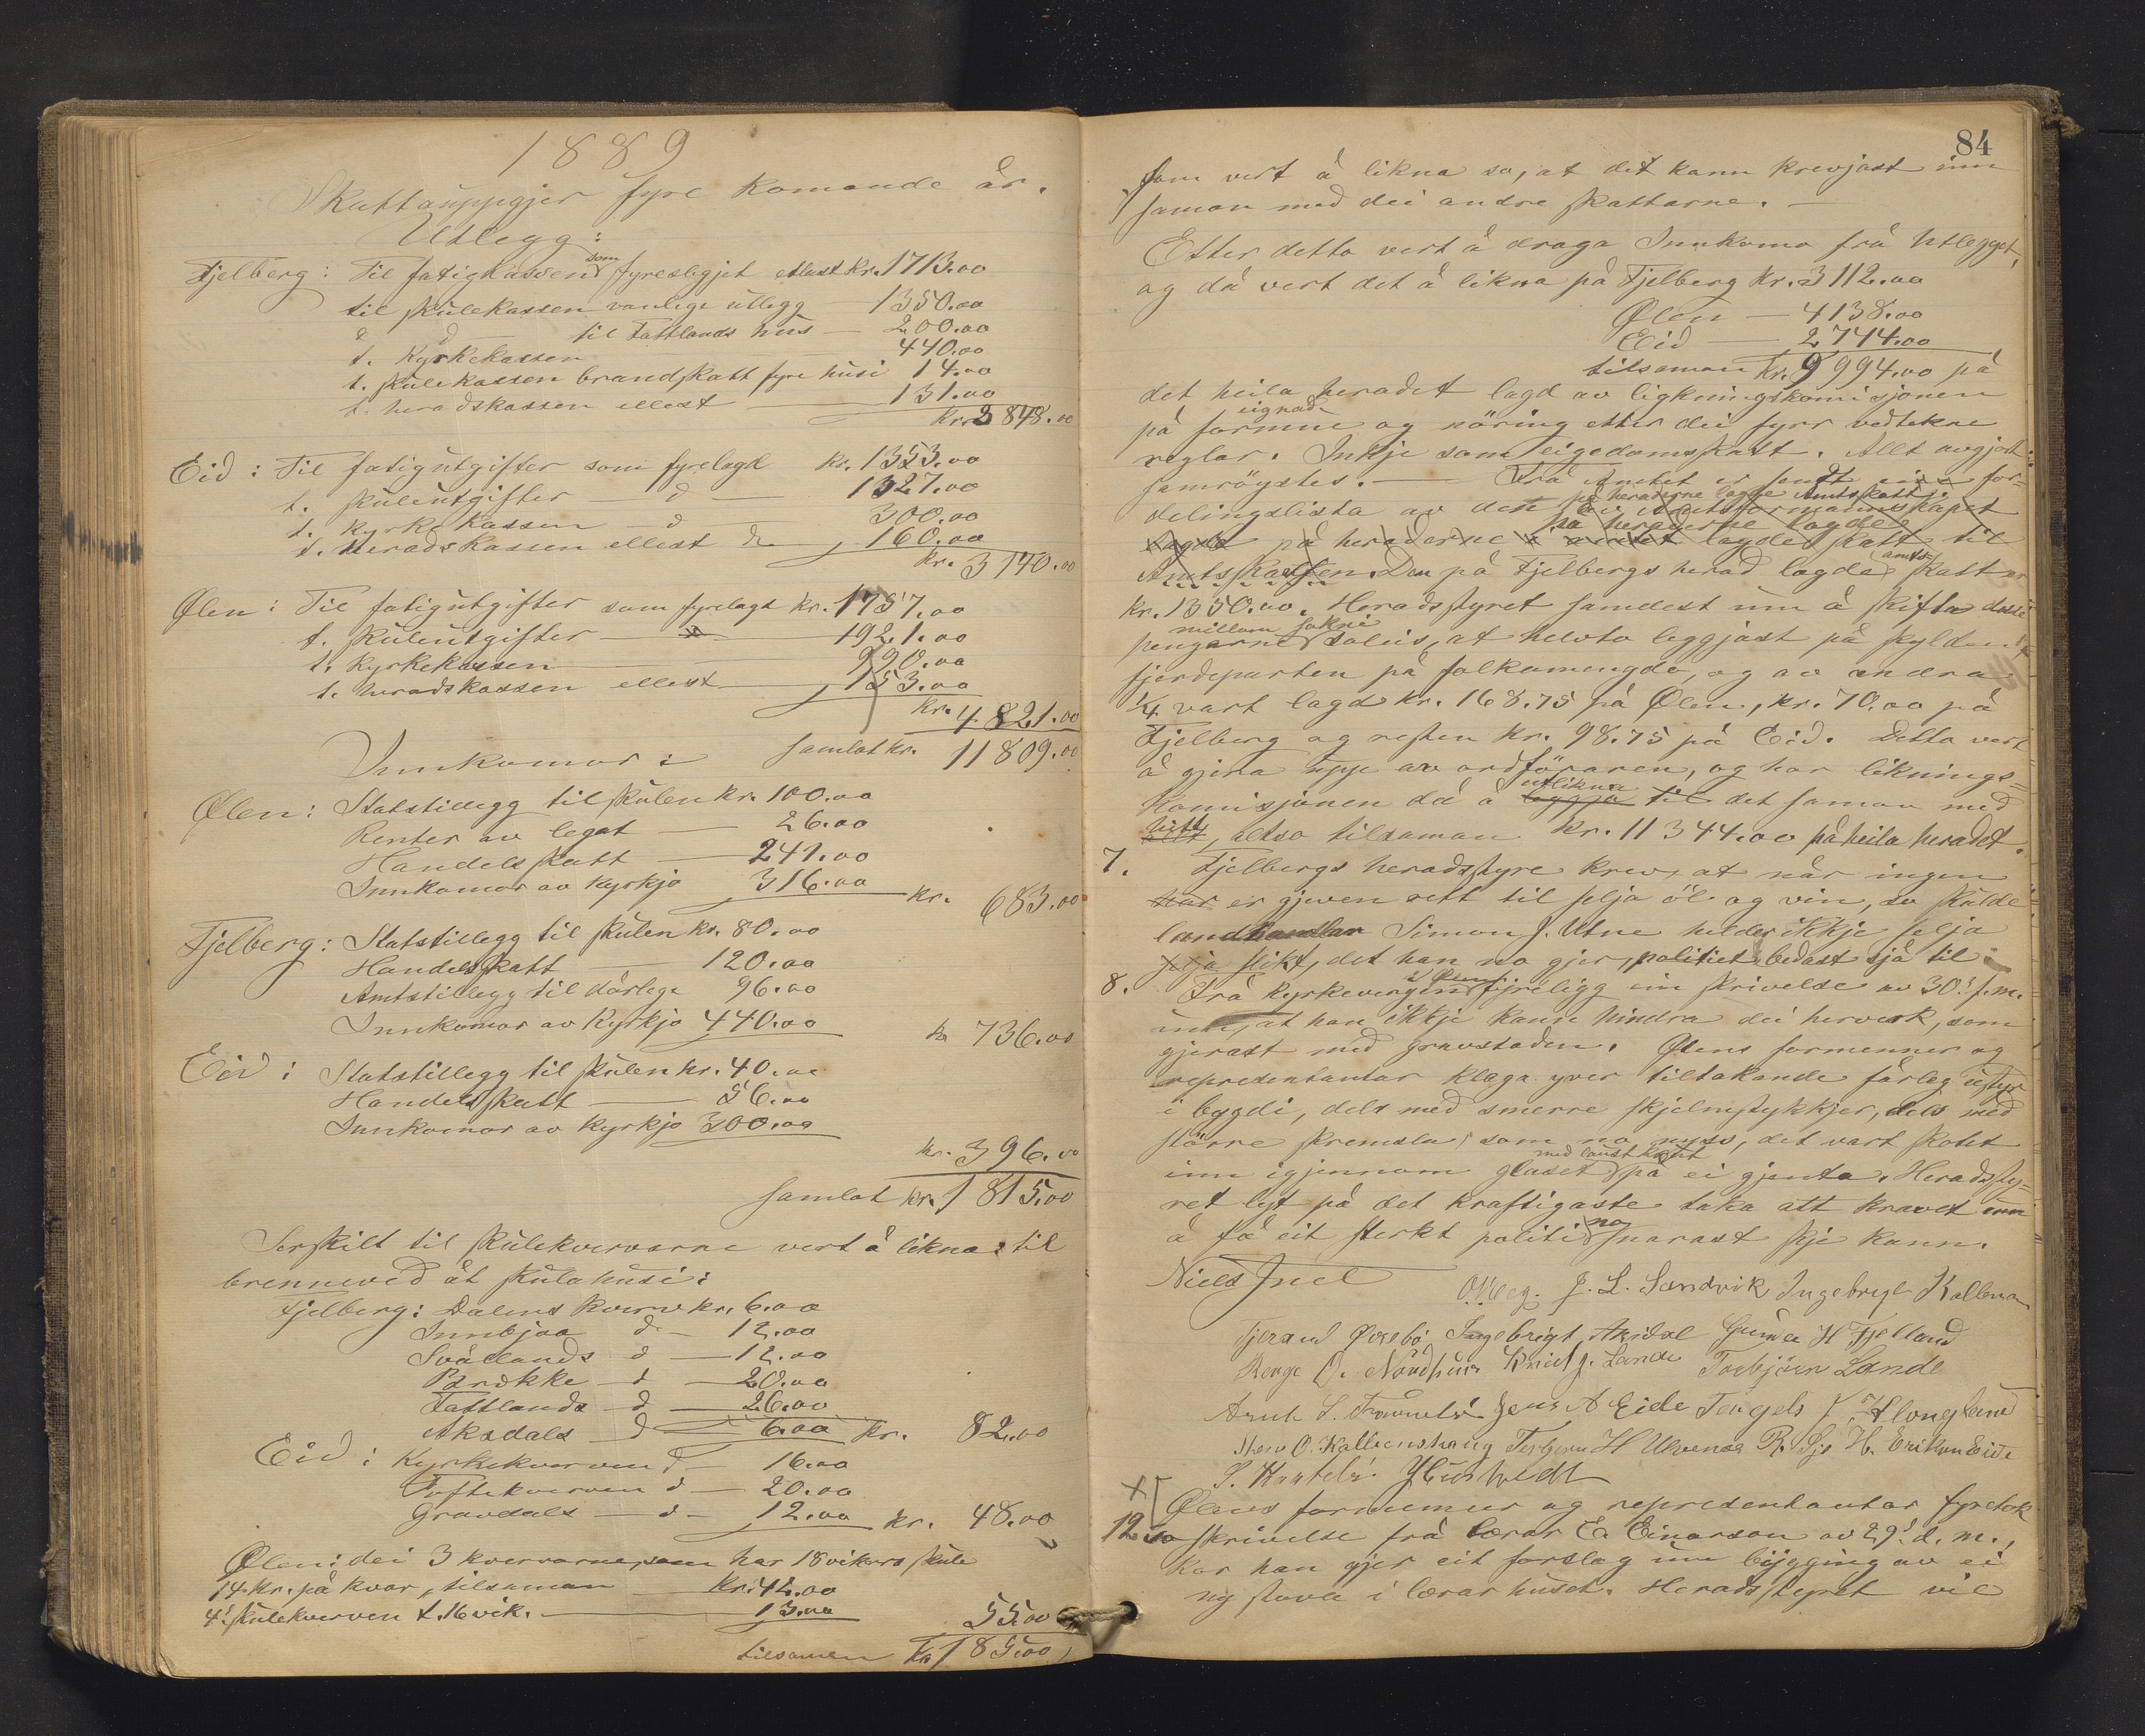 1889
Skattauppgjer fyre komande år.
Utlegg:
Fjelberg: Til fatigkassen som fyreslegjet etlast Kr. 1713.00
til skulekassen vanlege utlegg 1350.00
d d til Fattlands hus — 200.00
t. Kyrkekassen 440.00
t. skulekassen brandskatt fyre husi 14.00
t. heradskassen ellest 131.00
Kr. 3848.00
Eid: Til fatigutgifter som fyrelagd kr. 1353.00
t. skuleutgifter — d — 1327.00
t. Kyrkekassen — d 300.00
t. heradskassen ellest d 160.00
kr. 3140.00
Ølen: Til fatigutgifter som fyrelagt kr. 1757.00
t. skuleutgifter 1921.00
t. kyrkekassen 990.00
t. heradskassen ellest 153.00
kr. 4821.00
Innkomor: samlat kr. 11809.00
Ølen: Statstillegg til skulen kr. 100.00
Renter av legat — 26.00
Handelskatt — 241.00
Innkomor av kyrkjo 316.00 kr. 683.00
Fjelberg: Statstillegg til skulen kr. 80.00
Handelsskatt — 120.00
Amtstillegg til dårlege 96.00
Innkomor av Kyrkjo 440.00 kr 736.00
Eid: Statstillegg til skulen kr. 40.00
Handelsskatt — 56.00
Innkomor av kyrkjo 300.00
kr. 396.00
samlat kr. 1815.00
Serskilt til skulekvervarne vert å likna: til
brenneved åt skulahusi:
Fjelberg: Dalens kverv kr. 6.00
Innbjoa d — 12.00
Svållands d — 12.00
d — 20.00
Fattlands d — 26.00
Aksdals d — 6.00 Kr. 82.00
Eid: Kyrkekverven d — 16.00
Toftekverven d — 20.00
Gravdals — d — 12.00 kr. 48.00
Ølen: dei 3 kvervarne, som har 18 vikors skule
14 kr. på kvar, tilsaman kr. 42.00
4' skulekverven t. 16 vik. — 13.00 55.00
tilsamen Kr 185.00
84
som vert å likna so, at det kann krevjast inn
saman med dei andre skattarne. —
Etter detta vert å draga Innkomo frå Utlegget,
og då vert det å likna på Fjelberg Kr. 3112.00
Ølen — 4138.00
Eid — 2744.00
tilsaman Kr. 9994.00 på
det heila heradet lagd av likningskomisjonen
på formue eignad og näring etter dei fyrr vedtekne
reglar. Inkje som eigedomsskatt. Allt avgjort
samröystes. — Frå Amtet er sendt ein for-
delingslista av den på heraderne lagde Amtskatt av Amtsformannskapet
på heraderne lagde
lagda på heraderne i amtet lagde skatt til
Amtskassen. Den på Fjelbergs herad lagde amts-skatt er
kr. 1350.00. Heradsstyret samdest um å skifta desse
pengarne millom sokni soleis, at helvta leggjast på skylden,
fjordeparten på folkamengde, og av andra
1/4 vart lagd kr. 168.75 på Ølen, kr. 70.00 på
Fjelberg og resten kr. 98.75 på Eid. Detta vert
å gjera uppe av ordföraren, og har liknings-
komisjonen då å leggja til utlikna det saman med
allt hitt, altso tilsaman Kr. 11344.00 på heila heradet.
7. Fjelbergs heradsstyre krev, at når ingen
har er gjeven rett til selja öl og vin, so skulde
landhandlar Simon J. Utne helder ikkje selja
selja slikt, det han no gjer, politiet bedast sjå til
8. Frå kyrkevergen i Ølens fyreligg ein skrivelse av 30' f.m.
um, at han ikkje kann hindra dei herverk, som
gjerast med gravstaden. Ølens formenner og
representantar klaga yver tiltakande fårleg ustyr
i bygdi, dels med smerre skjelmstykkjer, dels med
större skremsla, som no nyss, det vart skotet
inn igjennom glaset med laust krut på ei gjenta. Heradssty-
ret lyt på det kraftigaste taka att kravet um
å få eit sterkt politi no snarast skje kann.
Niels Juel O. Weg. J. L. Sandvik Ingebrigt
Tjerand Øvrebö Ingebrigt Aksdal Gunder H Fjelland
Berge O. Nordhuus Knut J. Lande Torbjörn Lande
L. Jens A Eide Tengels
O. H R. H. Eriksen Eide
S.
x
Ølens formenner og representantar fyretok
12 so skrivelse frå lærar E. Einarson av 29' d. m.,
kor han gjer eit forslag um bygging av ei
ny stova i lærarhuset. Heradsstyret vil